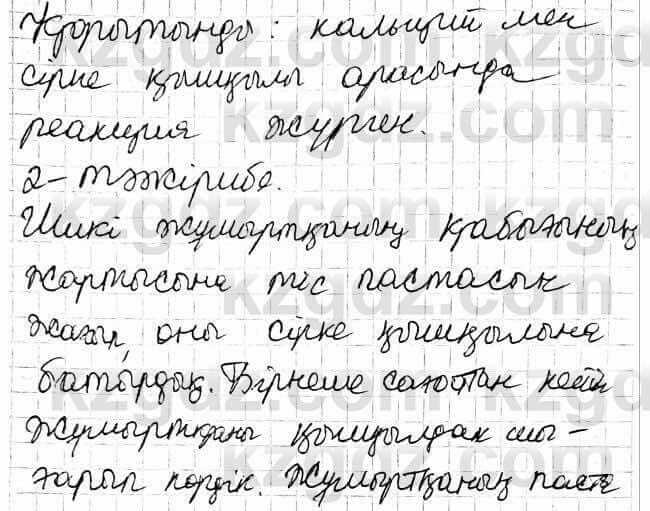 Қорытынды: кальций мен
сірке қышқылы арасында
реакция жүрген.
2-тәжірибе.
Шикі жұмыртқаның қабығының
жартысына тіс пастасын
жағып, оны сірке қышқылына
батырдық. Бірнеше сағаттан кейін
жұмыртқаны қышқылдан шы-
ғарып көрдік. Жұмыртқаның паста